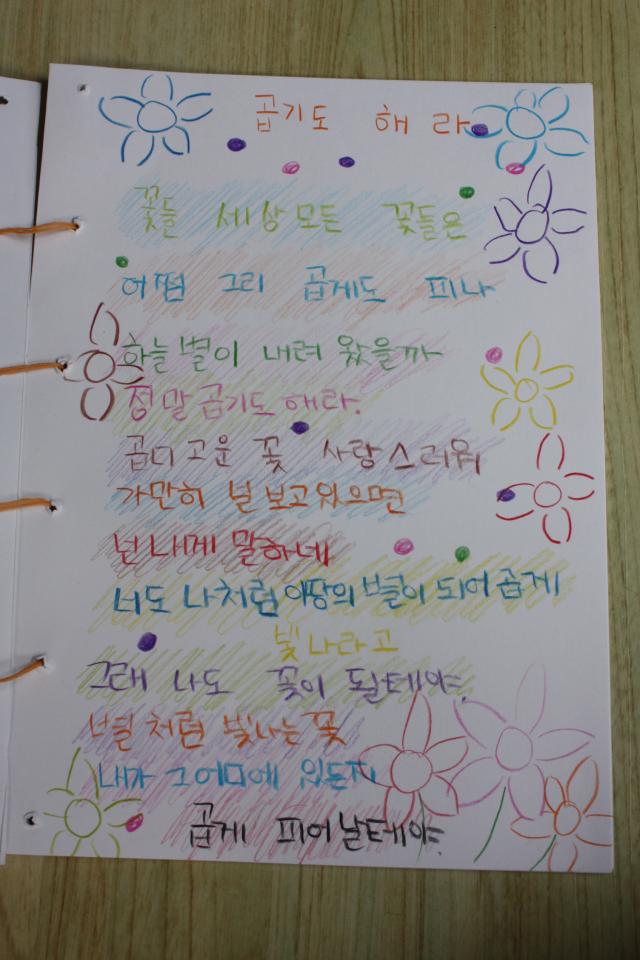 곱기도 해 라
꽃들 세상모든 꽃들은
어쩜 그리 곱게도 피나
하늘 별이 내려 왔을까
정말 곱기도 해라.
곱디고운 꽃 사랑스러워
가만히 널 보고있으면
넌 내게 말하네
너도 나처럼 이땅의 별이 되어 곱게
빛나라고
그래 나도 꽃이 될테야.
별처럼 빛나는 꽃
내가 그어디에 있든지
곱게 피어날테야.